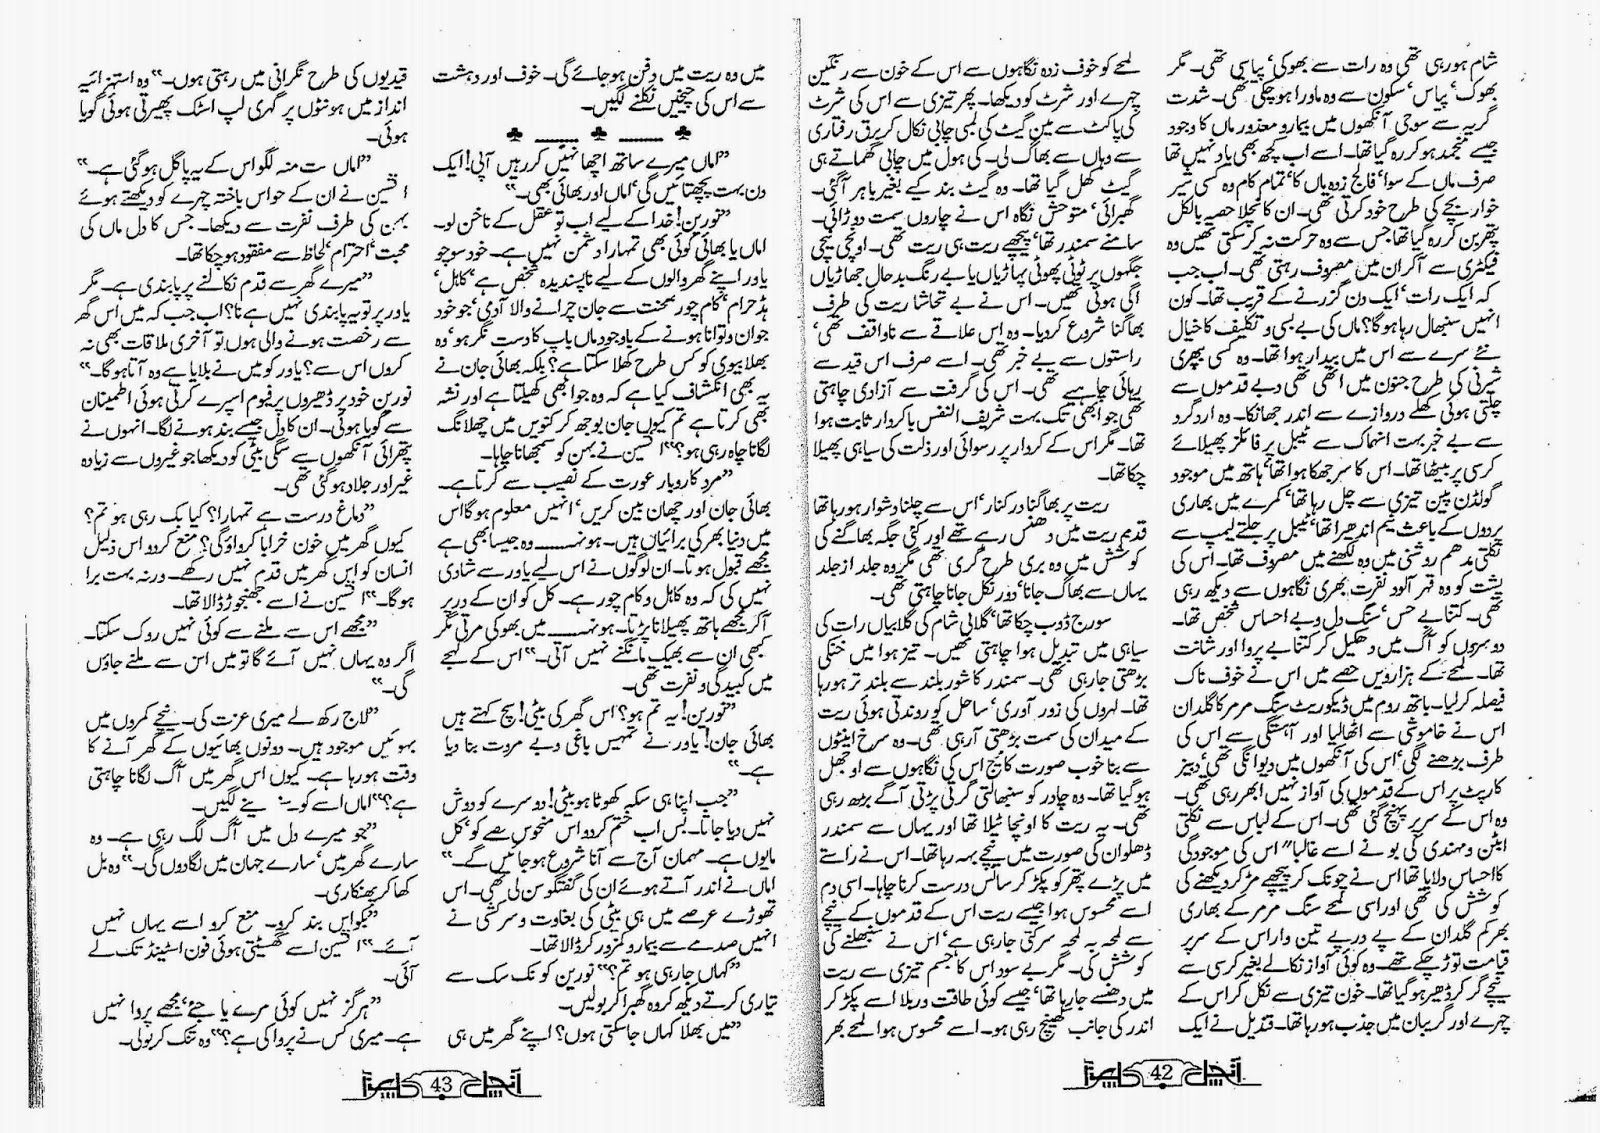 شام ہورہی تھی وہ رات سے بھوکی، پیاسی تھی۔ مگر
بھوک، پیاس، سکون سے وہ ماورا ہوچکی تھی۔ شدت
گریہ سے سوجی آنکھوں میں بیمار و معذور ماں کا وجود
جیسے منجمد ہوکر رہ گیا تھا۔ اسے اب کچھ بھی یاد نہیں تھا
صرف ماں کے سوا، فالج زدہ ماں کا، تمام کام وہ کسی شیر
خوار بچے کی طرح خود کرتی تھی۔ ان کا نچلا حصہ بالکل
پتھر بن کر رہ گیا تھا جس سے وہ حرکت نہ کرسکتی تھیں وہ
فیکٹری سے آکر ان میں مصروف رہتی تھی۔ اب جب
کہ ایک رات، ایک دن گزرنے کے قریب تھا۔ کون
انہیں سنبھال رہا ہوگا؟ ماں کی بے بسی و تکلیف کا خیال
نئے سرے سے اس میں بیدار ہوا تھا۔ وہ کسی بپھری
شیرنی کی طرح جنون میں اٹھی تھی دبے قدموں سے
چلتی ہوئی کھلے دروازے سے اندر جھانکا۔ وہ اردگرد
سے بے خبر بہت انہماک سے ٹیبل پر فائلز پھیلائے
کرسی پر بیٹھا تھا۔ اس کا سر جھکا ہوا تھا، ہاتھ میں موجود
گولڈن پین تیزی سے چل رہا تھا، کمرے میں بھاری
پردوں کے باعث نیم اندھیرا تھا، ٹیبل پر جلتے لیمپ سے
نکلتی مدھم روشنی میں وہ لکھنے میں مصروف تھا۔ اس کی
پشت کو وہ قہر آلود نفرت بھری نگاہوں سے دیکھ رہی
تھی۔ کتنا بے حس، سنگ دل و بے احساس شخص تھا۔
دوسروں کو آگ میں دھکیل کر کتنا بے پروا اور شانت
تھا۔ لمحے کے ہزارویں حصے میں اس نے خوف ناک
فیصلہ کرلیا۔ باتھ روم میں ڈیکوریٹ سنگ مرمر کا گلدان
اس نے خاموشی سے اٹھالیا اور آہستگی سے اس کی
طرف بڑھنے لگی، اس کی آنکھوں میں دیوانگی تھی، دبیز
کارپٹ پر اس کے قدموں کی آواز نہیں ابھر رہی تھی۔
وہ اس کے سر پر پہنچ گئی تھی۔ اس کے لباس سے نکلتی
ابٹن و مہندی کی بو نے اسے غالباً اس کی موجودگی
کا احساس دلایا تھا اس نے چونک کر پیچھے مڑکر دیکھنے کی
کوشش کی تھی اور اسی لمحے سنگ مرمر کے بھاری
بھرکم گلدان کے پے درپے تین وار اس کے سر پر
قیامت توڑ چکے تھے۔ وہ کوئی آواز نکالے بغیر کرسی سے
نیچے گر کر ڈھیر ہوگیا تھا۔ خون تیزی سے نکل کر اس کے
چہرے اور گریبان میں جذب ہورہا تھا۔ قندیل نے ایک
لمحے کو خوف زدہ نگاہوں سے اس کے خون سے رنگین
چہرے اور شرٹ کو دیکھا۔ پھر تیزی سے اس کی شرٹ
کی پاکٹ سے مین گیٹ کی لمبی چابی نکال کر برق رفتاری
سے وہاں سے بھاگ لی۔ کی ہول میں چابی گھماتے ہی
گیٹ کھل گیا تھا۔ وہ گیٹ بند کیے بغیر باہر آگئی۔
گھبرائی، متوحش نگاہ اس نے چاروں سمت دوڑائی۔
سامنے سمندر تھا، پیچھے ریت ہی ریت تھی۔ اونچی نیچی
جگہوں پر ٹوٹی پھوٹی پہاڑیاں یا بے رنگ بدحال جھاڑیاں
اگی ہوئی تھیں۔ اس نے بے تحاشا ریت کی طرف
بھاگنا شروع کردیا۔ وہ اس علاقے سے ناواقف تھی،
راستوں سے بے خبر تھی۔ اسے صرف اس قید سے
رہائی چاہیے تھی۔ اس کی گرفت سے آزادی چاہتی
تھی جو ابھی تک بہت شریف النفس باکردار ثابت ہوا
تھا۔ مگر اس کے کردار پر رسوائی اور ذلت کی سیاہی پھیلا
چکا تھا۔
ریت پر بھاگنا درکنار، اس سے چلنا دشوار ہورہا تھا
قدیم ریت میں دھنس رہے تھے اور کئی جگہ بھاگنے کی
کوشش میں وہ بری طرح گری تھی مگر وہ جلد از جلد
یہاں سے بھاگ جانا، دور نکل جانا چاہتی تھی۔
سورج ڈوب چکا تھا، گلابی شام کی گلابیاں رات کی
سیاہی میں تبدیل ہوا چاہتی تھیں۔ تیز ہوا میں خنکی
بڑھتی جارہی تھی۔ سمندر کا شور بلند سے بلند تر ہورہا
تھا۔ لہروں کی زور آوری، ساحل کو روندتی ہوئی ریت
کے میدان کی سمت بڑھتی آرہی تھی۔ وہ سرخ اینٹوں
سے بنا خوب صورت کاٹج اس کی نگاہوں سے اوجھل
ہوگیا تھا۔ وہ چادر کو سنبھالتی گرتی پڑتی آگے بڑھ رہی
تھی۔ یہ ریت کا اونچا ٹیلا تھا اور یہاں سے سمندر
ڈھلوان کی صورت میں نیچے بہہ رہا تھا۔ اس نے راستے
میں پڑے پتھر کو پکڑ کر سانس درست کرنا چاہا۔ اسی دم
اسے محسوس ہوا جیسے ریت اس کے قدموں کے نیچے
سے لمحہ بہ لمحہ سرکتی جارہی ہے، اس نے سنبھلنے کی
کوشش کی۔ مگر بے سود اس کا جسم تیزی سے ریت
میں دھنسے جارہا تھا، جیسے کوئی طاقت ور بلا اسے پکڑ کر
اندر کی جانب کھینچ رہی ہو۔ اسے محسوس ہوا لمحے بھر
آنچل 42
میں وہ ریت میں دفن ہوجائے گی۔ خوف اور دہشت
سے اس کی چیخیں نکلنے لگیں۔
♣ ــــــ ♣ ــــــ ♣
"اماں میرے ساتھ اچھا نہیں کررہیں آپی! ایک
دن بہت پچھتائیں گی، اماں اور بھائی بھی۔"
"نورین! خدا کے لیے اب تو عقل کے ناخن لو۔
اماں یا بھائی کوئی بھی تمہارا دشمن نہیں ہے۔ خود سوچو
یاور اپنے گھر والوں کے لیے ناپسندیدہ شخص ہے، کاہل،
ہڈحرام، کام چور محنت سے جان چرانے والا آدمی، جو خود
جوان و توانا ہونے کے باوجود ماں باپ کا دست نگر ہو، وہ
بھلا بیوی کو کس طرح کھلا سکتا ہے؟ بلکہ بھائی جان نے
یہ بھی انکشاف کیا ہے کہ وہ جوا بھی کھیلتا ہے اور نشہ
بھی کرتا ہے تم کیوں جان بوجھ کر کنویں میں چھلانگ
لگانا چاہ رہی ہو؟" افشین نے بہن کو سمجھانا چاہا۔
"مرد کا روبار عورت کے نصیب سے کرتا ہے۔
بھائی جان اور چھان بین کریں، انہیں معلوم ہوگا اس
میں دنیا بھر کی برائیاں ہیں۔ ہونہہ ــــ وہ جیسا بھی ہے
مجھے قبول ہوتا۔ ان لوگوں نے اس لیے یاور سے شادی
نہیں کی کہ وہ کاہل و کام چور ہے۔ کل کو ان کے در پر
آکر مجھے ہاتھ پھیلانا پڑتا۔ ہونہہ ــــ میں بھوکی مرتی مگر
کبھی ان سے بھیک مانگنے نہیں آتی۔" اس کے لہجے
میں کبیدگی و نفرت تھی۔
"نورین! یہ تم ہو؟ اس گھر کی بیٹی! سچ کہتے ہیں
بھائی جان! یاور نے تمہیں باغی و بے مروت بنا دیا
ہے۔"
"جب اپنا ہی سکہ کھوٹا ہو بیٹی! دوسرے کو دوش
نہیں دیا جاتا۔ بس اب ختم کردو اس منحوس قصے کو، کل
مایوں ہے۔ مہمان آج سے آنا شروع ہوجائیں گے۔"
اماں نے اندر آتے ہوئے ان کی گفتگو سن لی تھی۔ اس
تھوڑے عرصے میں ہی بیٹی کی بغاوت و سرکشی نے
انہیں صدمے سے بیمار و کمزور کر ڈالا تھا۔
"کہاں جارہی ہو تم؟" نورین کو تک سک سے
تیاری کرتے دیکھ کر وہ گھبرا کر بولیں۔
"میں بھلا کہاں جاسکتی ہوں؟ اپنے گھر میں ہی
قیدیوں کی طرح نگرانی میں رہتی ہوں۔" وہ استہزائیہ
انداز میں ہونٹوں پر گہری لپ اسٹک پھیرتی ہوئی گویا
ہوئی۔
"اماں مت منہ لگو اس کے یہ پاگل ہوگئی ہے۔"
افشین نے ان کے حواس باختہ چہرے کو دیکھتے ہوئے
بہن کی طرف نفرت سے دیکھا۔ جس کا دل ماں کی
محبت، احترام، لحاظ سے مفقود ہوچکا تھا۔
"میرے گھر سے قدم نکالنے پر پابندی ہے۔ مگر
یاور پر تو یہ پابندی نہیں ہے نا؟ اب جب کہ میں اس گھر
سے رخصت ہونے والی ہوں تو آخری ملاقات بھی نہ
کروں اس سے؟ یاور کو میں نے بلایا ہے وہ آتا ہوگا۔"
نورین خود پر ڈھیروں پرفیوم اسپرے کرتی ہوئی اطمینان
سے گویا ہوئی۔ ان کا دل جیسے بند ہونے لگا۔ انہوں نے
پتھرائی آنکھوں سے سگی بیٹی کو دیکھا جو غیروں سے زیادہ
غیر اور جلاد ہوگئی تھی۔
"دماغ درست ہے تمہارا؟ کیا بک رہی ہو تم؟
کیوں گھر میں خون خرابا کرواؤگی؟ منع کردو اس ذلیل
انسان کو اس گھر میں قدم نہیں رکھے۔ ورنہ بہت برا
ہوگا۔" افشین نے اسے جھنجوڑ ڈالا تھا۔
"مجھے اس سے ملنے سے کوئی نہیں روک سکتا۔
اگر وہ یہاں نہیں آئے گا تو میں اس سے ملنے جاؤں
گی۔"
"لاج رکھ لے میری عزت کی۔ نیچے کمروں میں
بہوئیں موجود ہیں۔ دونوں بھائیوں کے گھر آنے کا
وقت ہورہا ہے۔ کیوں اس گھر میں آگ لگانا چاہتی
ہے؟" اماں اسے کو نے لگیں۔
"جو میرے دل میں آگ لگ رہی ہے۔ وہ
سارے گھر میں، سارے جہان میں لگادوں گی۔" وہ بل
کھا کر پھنکاری۔
"بکواس بند کرو۔ منع کرو اسے یہاں نہیں
آئے۔" افشین اسے گھسیٹتی ہوئی فون اسٹینڈ تک لے
آئی۔
"ہرگز نہیں کوئی مرے یا جئے، مجھے پروا نہیں
ہے۔ میری کس نے پروا کی ہے؟" وہ تنک کر بولی۔
آنچل 43